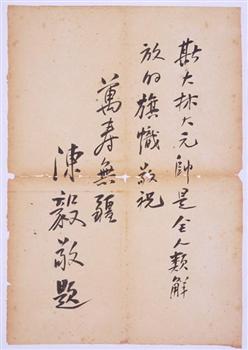 斯大林大元帥是全人類解
放的旗幟敬祝
萬壽無疆
陳毅敬題